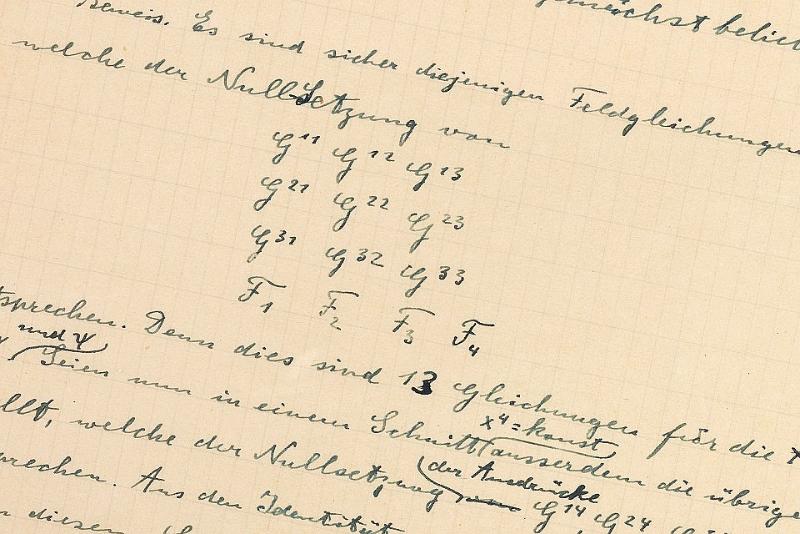 zunächst belieb
Beweis. Es sind sicher diejenigen Feldgleichungen
welche der Nullsetzung von
G¹¹ G¹² G¹³
G²¹ G²² G²³
G³¹ G³² G³³
F₁ F₂ F₃ F₄
tsprechen. Denn dies sind 13 Gleichungen für die X
und ψ
Seien nun in einem Schnitt x⁴ = konst ausserdem die übrige
llt, welche der Nullsetzung der Ausdrücke G¹⁴ G²⁴
prechen. Aus den Identität
n diesen